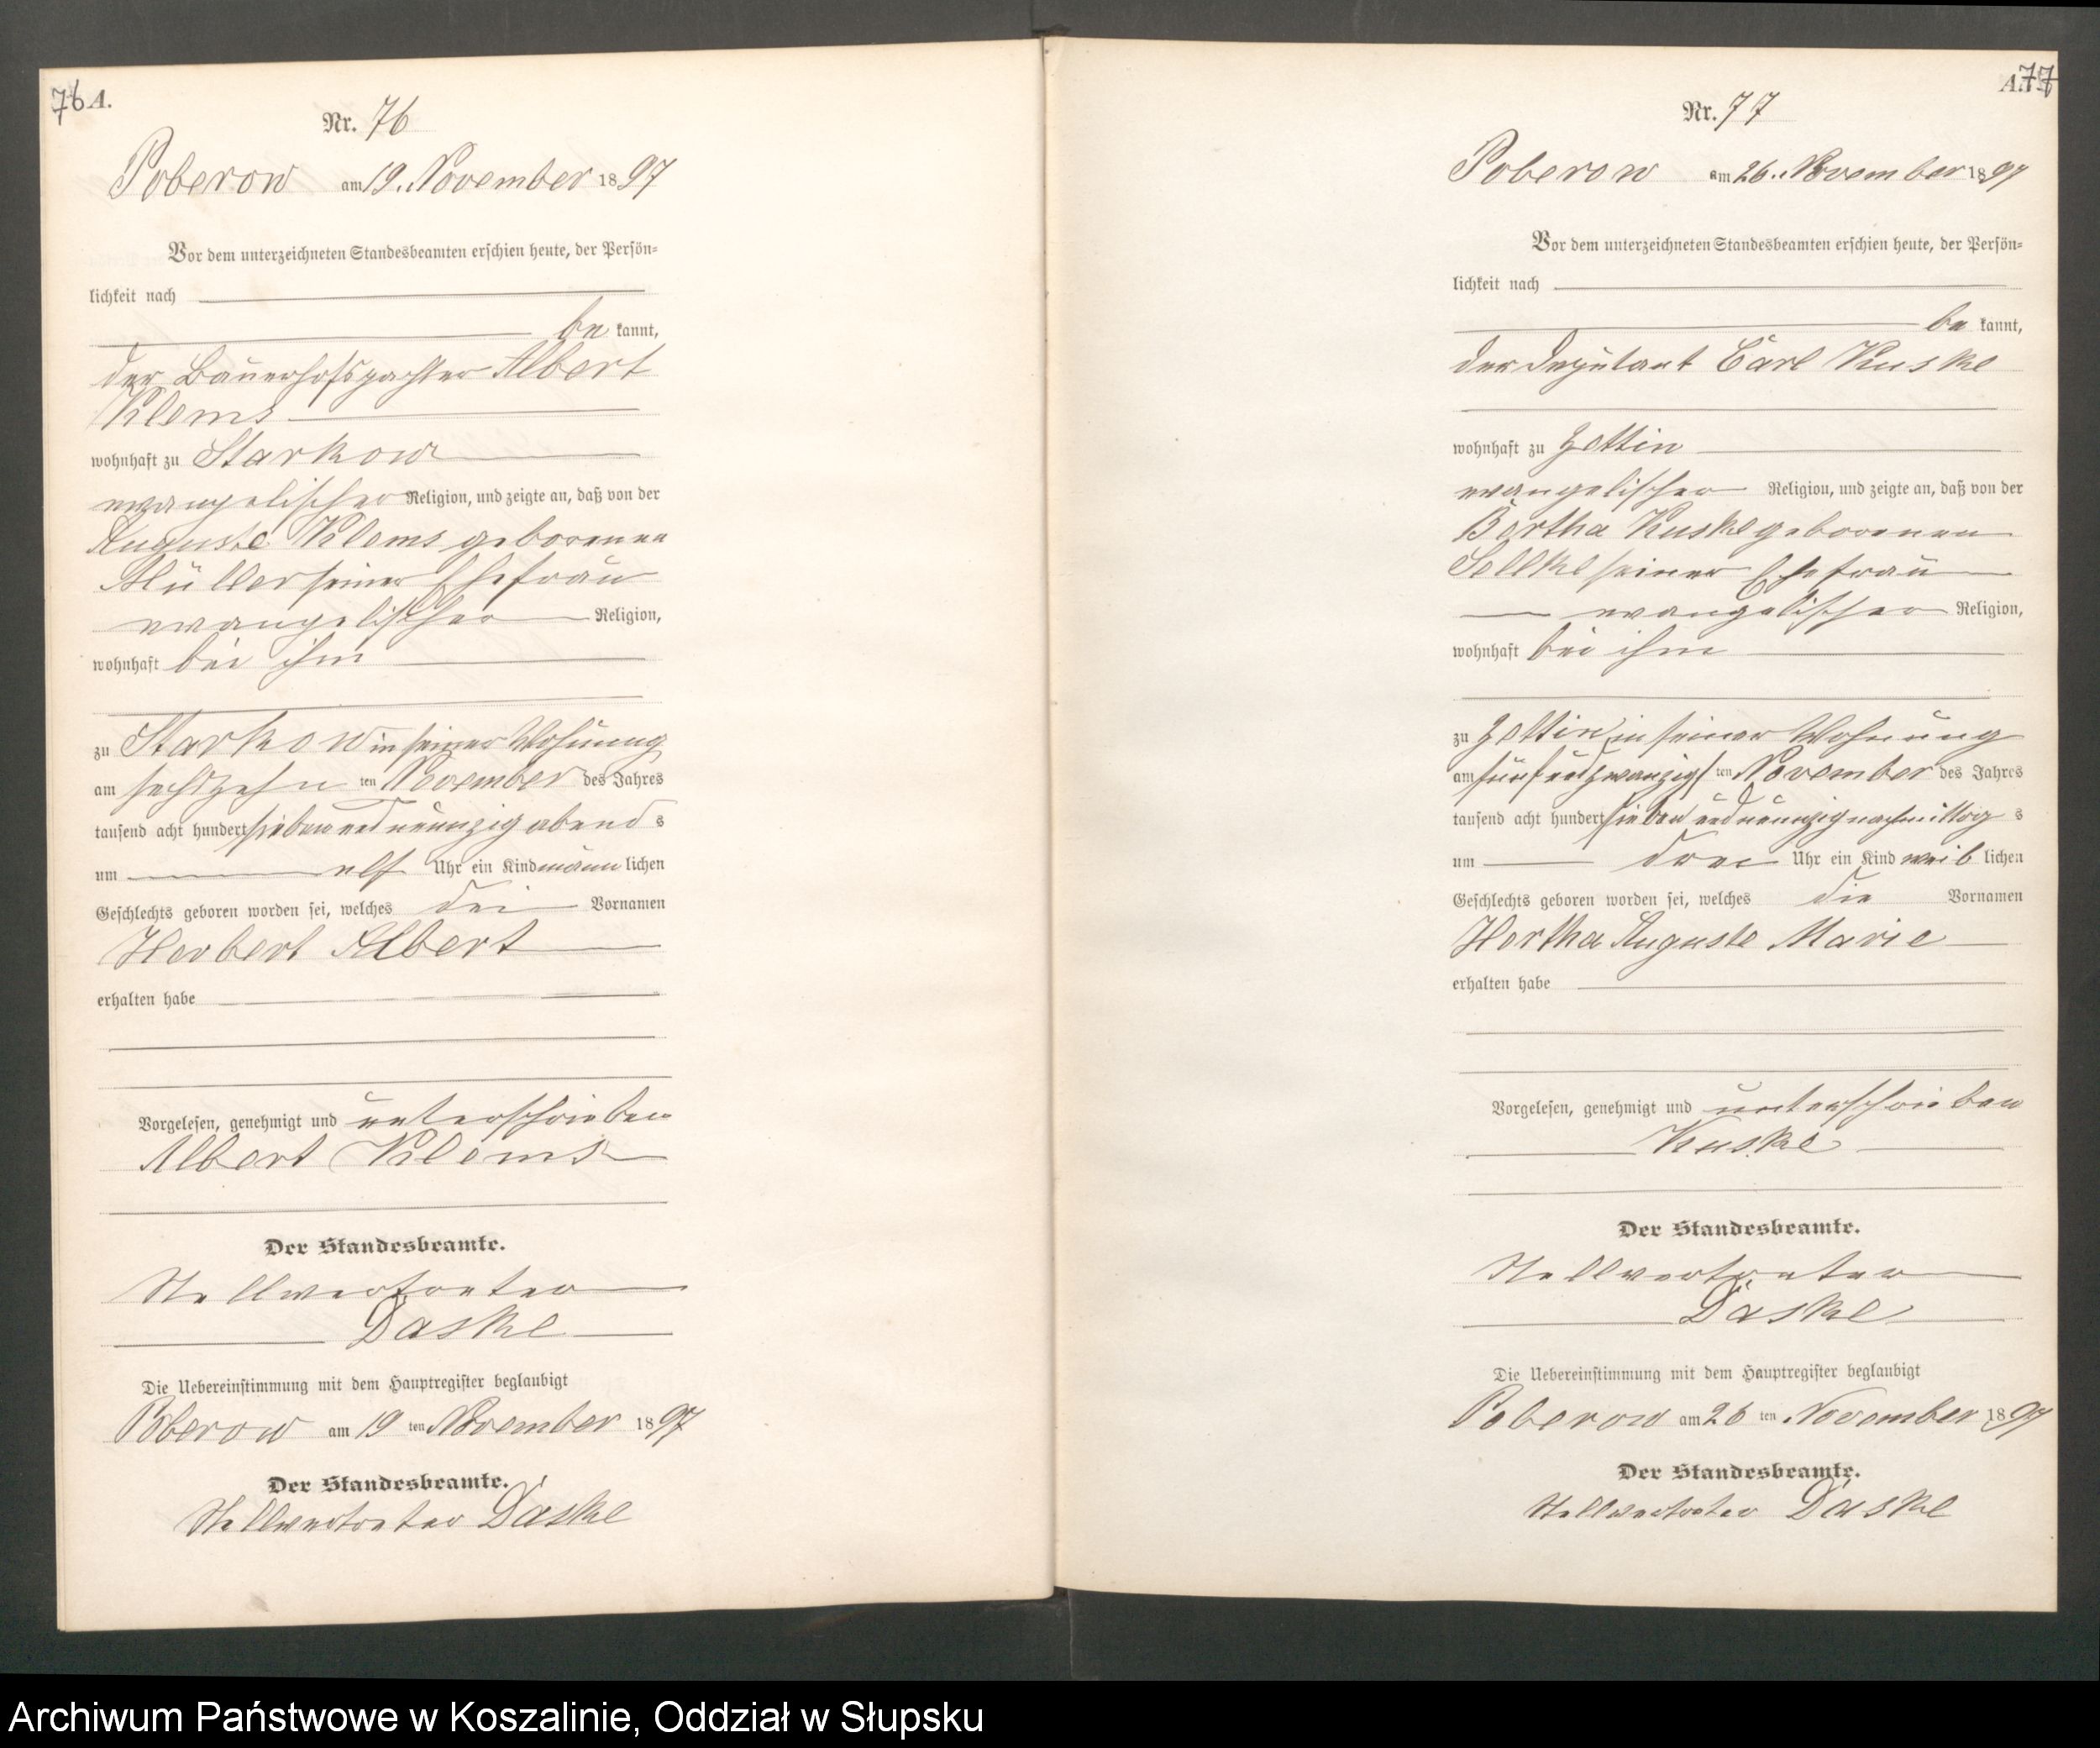 76 A.
Nr. 76
Poberow am 19. November 1897
Vor dem unterzeichneten Standesbeamten erschien heute, der Persön-
lichkeit nach
be kannt,
der Bauerhofspachter Albert
Klems
wohnhaft zu Starkow
evangelischer Religion, und zeigte an, daß von der
Auguste Klems geborenen
Müller seiner Ehefrau
evangelischer Religion,
wohnhaft bei ihm
zu Starkow in seiner Wohnung
am sechszehn ten November des Jahres
tausend acht hundert sieben und neunzig abend s
um elf Uhr ein Kind männ lichen
Geschlechts geboren worden sei, welches die Vornamen
Herbert Albert
erhalten habe
Vorgelesen, genehmigt und unterschrieben
Albert Klems
Der Standesbeamte.
Stellvertreter
Daske
Die Uebereinstimmung mit dem Hauptregister beglaubigt
Poberow am 19 ten November 1897
Der Standesbeamte.
Stellvertreter Daske
A. 77
Nr. 77
Poberow am 26. November 1897
Vor dem unterzeichneten Standesbeamten erschien heute, der Persön-
lichkeit nach
be kannt,
der Deputant Carl Kuske
wohnhaft zu Zettin
evangelischer Religion, und zeigte an, daß von der
Bertha Kuske geborenen
Sellke seiner Ehefrau
evangelischer Religion,
wohnhaft bei ihm
zu Zettin in seiner Wohnung
am fünf und zwanzigs ten November des Jahres
tausend acht hundert sieben und neunzig nachmittag s
um drei Uhr ein Kind weib lichen
Geschlechts geboren worden sei, welches die Vornamen
Hertha Auguste Marie
erhalten habe
Vorgelesen, genehmigt und unterschrieben
Kuske
Der Standesbeamte.
Stellvertreter
Daske
Die Uebereinstimmung mit dem Hauptregister beglaubigt
Poberow am 26 ten November 1897
Der Standesbeamte.
Stellvertreter Daske
Archiwum Państwowe w Koszalinie, Oddział w Słupsku